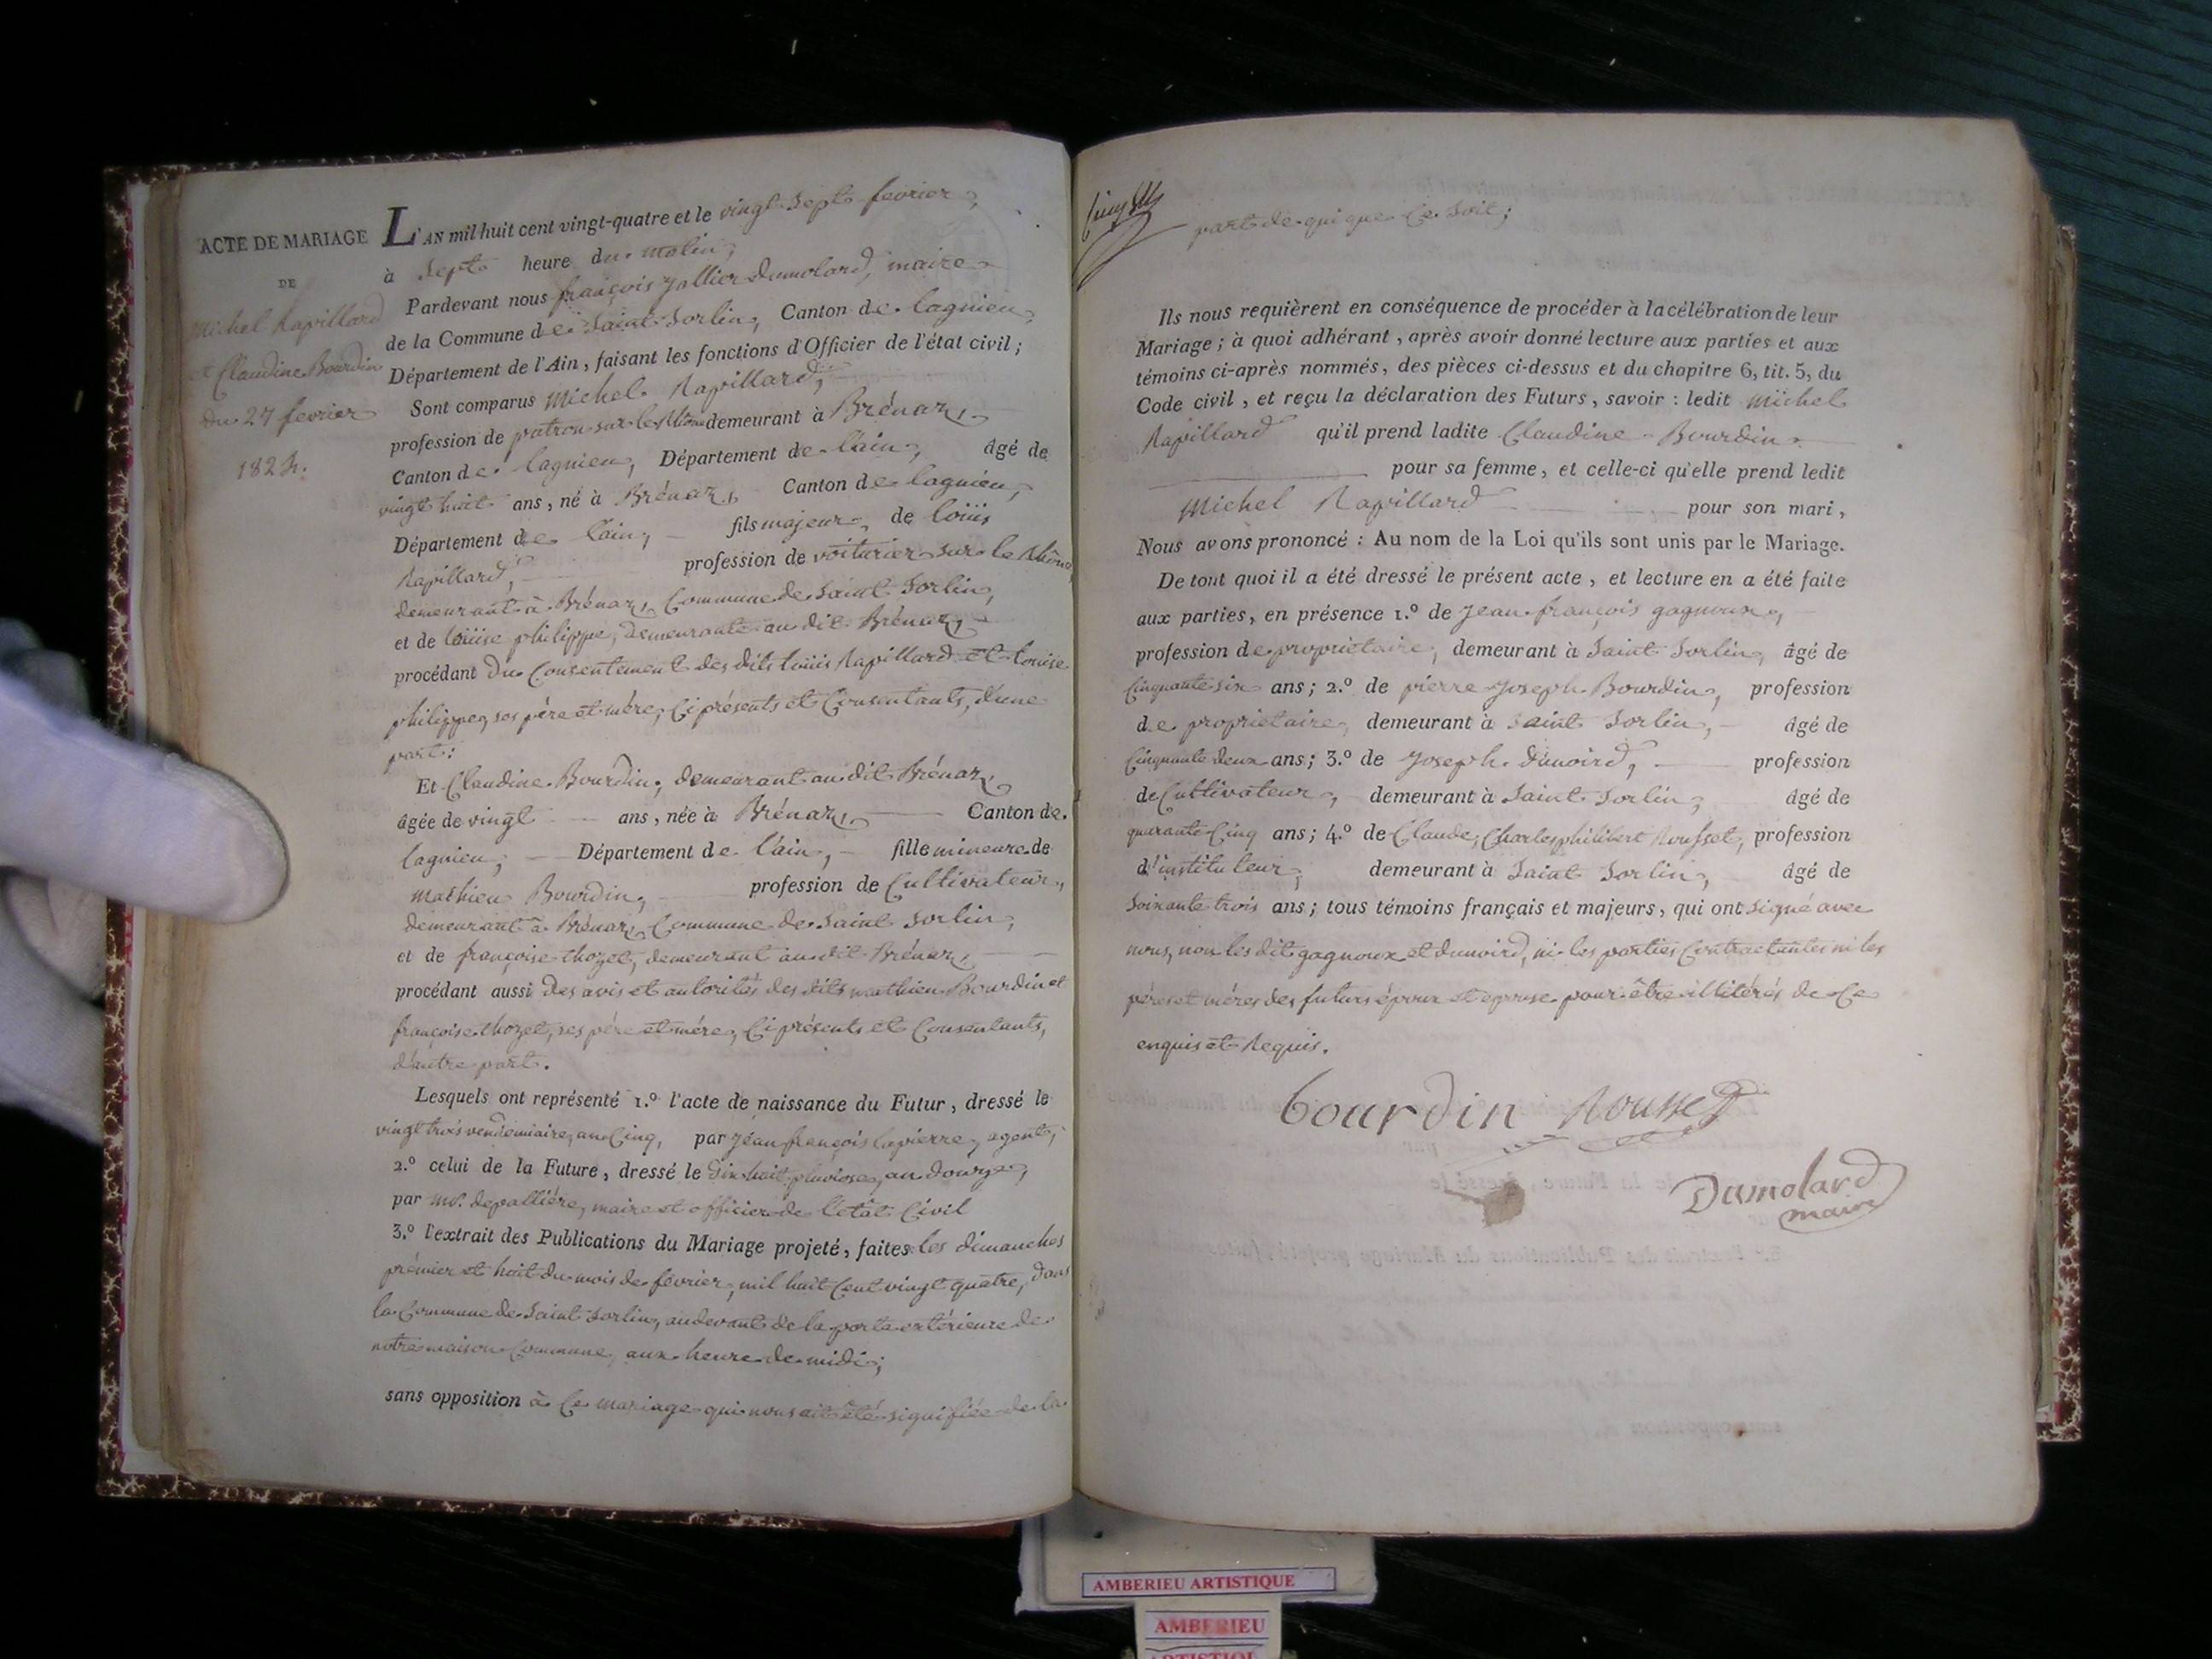 ACTE DE MARIAGE
DE
Michel Rapillard
et Claudine Bourdin
du 27 fevrier
1824.
L'AN mil huit cent vingt-quatre et le vingt Sept fevrier,
à Sept heure du matin,
Pardevant nous françois Jallier Dumolard, maire
de la Commune de Saint Sorlin, Canton de lagnieu,
Département de l'Ain, faisant les fonctions d'Officier de l'état civil;
Sont comparus Michel Rapillard,
profession de patron sur le Rhône demeurant à Brénaz,
Canton de lagnieu, Département de l'ain, âgé de
vingt huit ans, né à Brénaz, Canton de lagnieu,
Département de l'ain, fils majeur, de loüis
Rapillard, profession de voiturier sur le Rhône
demeurant à Brénaz, Commune de Saint Sorlin,
et de loüise philippe, demeurante au dit Brénaz,
procédant du Consentement des dits loüis Rapillard et loüise
philippe, ses père et mère, Ci présents et Consentants, d'une
part:
Et Claudine Bourdin, demeurant au dit Brénaz,
âgée de vingt ans, née à Brénaz, Canton de
lagnieu, Département de l'ain, fille mineure de
mathieu Bourdin, profession de Cultivateur,
demeurant à Brénaz, Commune de Saint Sorlin,
et de françoise thozet, demeurant au dit Brénaz,
procédant aussi des avis et autorités des dits mathieu Bourdin et
françoise thozet, ses père et mère, Ci présents et Consentants,
d'autre part.
Lesquels ont représenté 1.º l'acte de naissance du Futur, dressé le
vingt trois vendemiaire, an Cinq, par jean françois lapierre, agent,
2.º celui de la Future, dressé le Dix huit pluviose, an douze,
par mr. depallière, maire et officier de l'état Civil
3.º l'extrait des Publications du Mariage projeté, faites les dimanches
prémier et huit du mois de février, mil huit Cent vingt quatre, dans
la Commune de Saint Sorlin, au devant de la porte extérieure de
notre maison Commune, aux heure de midi;
sans opposition à Ce mariage qui nous ait été signifiée de la
part de qui que Ce Soit;
Ils nous requièrent en conséquence de procéder à la célébration de leur
Mariage; à quoi adhérant, après avoir donné lecture aux parties et aux
témoins ci-après nommés, des pièces ci-dessus et du chapitre 6, tit. 5, du
Code civil, et reçu la déclaration des Futurs, savoir: ledit Michel
Rapillard qu'il prend ladite Claudine Bourdin
pour sa femme, et celle-ci qu'elle prend ledit
Michel Rapillard pour son mari,
Nous avons prononcé: Au nom de la Loi qu'ils sont unis par le Mariage.
De tout quoi il a été dressé le présent acte, et lecture en a été faite
aux parties, en présence 1.º de jean françois gagnoux,
profession de propriétaire, demeurant à Saint Sorlin, âgé de
Cinquante six ans; 2.º de pierre Joseph Bourdin, profession
de propriétaire, demeurant à Saint Sorlin, âgé de
Cinquante deux ans; 3.º de Joseph dunoird, profession
de Cultivateur, demeurant à Saint Sorlin, âgé de
quarante Cinq ans; 4.º de Claude, Charles philibert Rousset, profession
d'instituteur, demeurant à Saint Sorlin, âgé de
Soixante trois ans; tous témoins français et majeurs, qui ont signé avec
nous, non les dit gagnoux et dunoird, ni les parties Contractantes ni les
pères et mères des futurs époux et épouse pour être illitérés de Ce
enquis et Requis.
bourdin Rousset
Dumolard
maire
AMBERIEU ARTISTIQUE
AMBERIEU
ARTISTIQUE